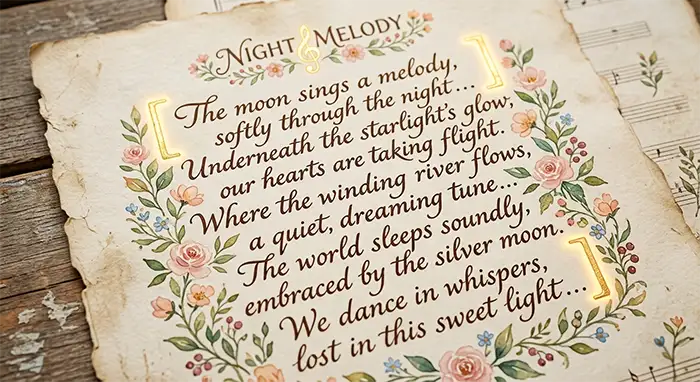 NIGHT MELODY
[ The moon sings a melody, ]
softly through the night...
Underneath the starlight's glow,
our hearts are taking flight.
Where the winding river flows,
a quiet, dreaming tune...
The world sleeps soundly,
embraced by the silver moon.
We dance in whispers,
lost in this sweet light... ]